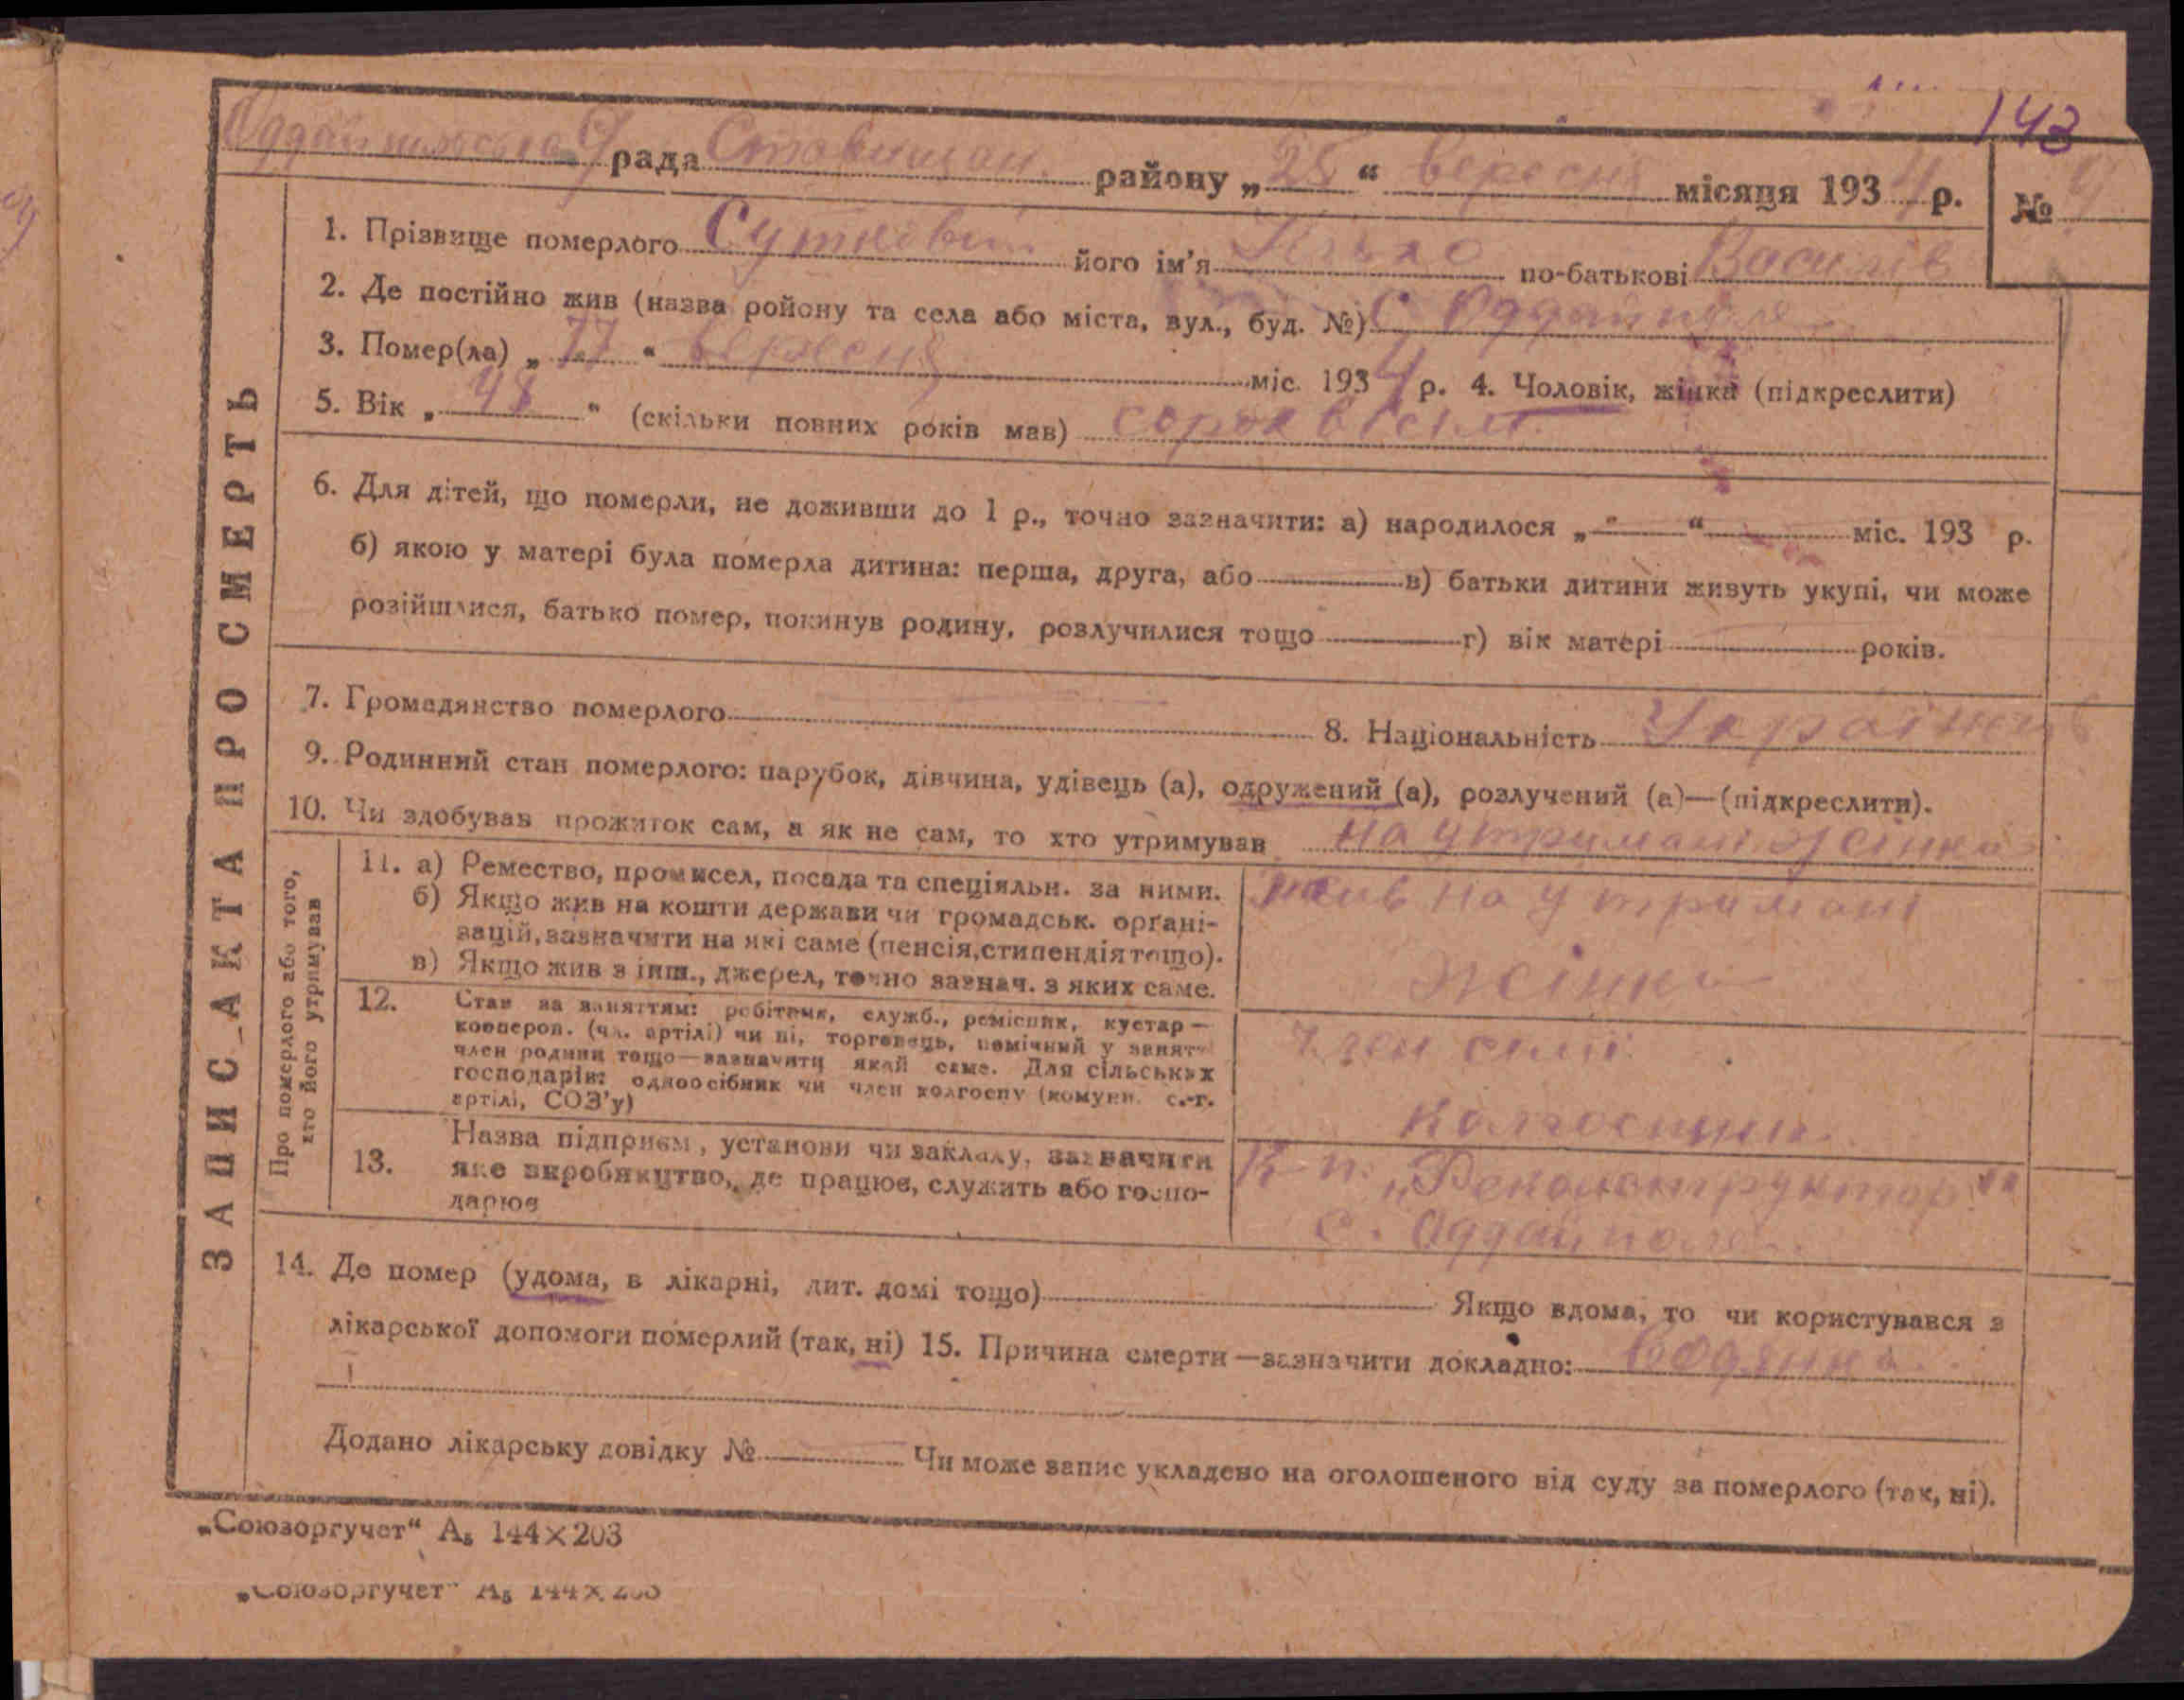 143
рада Ставищан. району „ 25 “ вересня місяця 193 4 р. № 9
1. Прізвище померлого Сутковий його ім'я по-батькові Василів
2. Де постійно жив (назва ройону та села або міста, вул., буд. №) С Оддайполе
3. Помер(ла) „ “ вересня міс. 193 4 р. 4. Чоловік, жінка (підкреслити)
5. Вік „ 48 “ (скільки повних років мав) сорок вісім
6. Для дітей, що померли, не доживши до 1 р., точно зазначити: а) народилося „ “ міс. 193 р.
б) якою у матері була померла дитина: перша, друга, або в) батьки дитини живуть укупі, чи може
розійшлися, батько помер, покинув родину, розлучилися тощо г) вік матері років.
7. Громадянство померлого 8. Національність Українець
9. Родинний стан померлого: парубок, дівчина, удівець (а), одружений (а), розлучений (а)—(підкреслити).
10. Чи здобував прожиток сам, а як не сам, то хто утримував на утримані жінки
ЗАПИС АКТА ПРО СМЕРТЬ
Про померлого або того,
хто його утримував
11. а) Ремество, промисел, посада та спеціяльн. за ними.
б) Якщо жив на кошти держави чи громадськ. орґані-
зацій, зазначити на які саме (пенсія, стипендія тощо).
в) Якщо жив з інш., джерел, точно зазнач. з яких саме.
жив на утримані
жінки
12. Стан за заняттям: робітник, служб., ремісник, кустар —
коопероп. (чл. артілі) чи ні, торговець, помічний у занят
член родини тощо—зазначити який саме. Для сільських
господарів: одноосібник чи член колгоспу (комуни, с.-г.
артілі, СОЗ'у)
член сімї
колгоспник
13. Назва підприєм, установи чи закладу, зазначити
яке виробництво, де працює, служить або госпо-
дарює
К-п. „Реконструктор"
с. Оддайполе
14. Де помер (удома, в лікарні, дит. домі тощо) Якщо вдома, то чи користувався з
лікарської допомоги померлий (так, ні) 15. Причина смерти—зазначити докладно: водянка
Додано лікарську довідку № Чи може запис укладено на оголошеного від суду за померлого (так, ні).
„Союзоргучет“ А₅ 144×203
„Союзоргучет“ А₅ 144×203